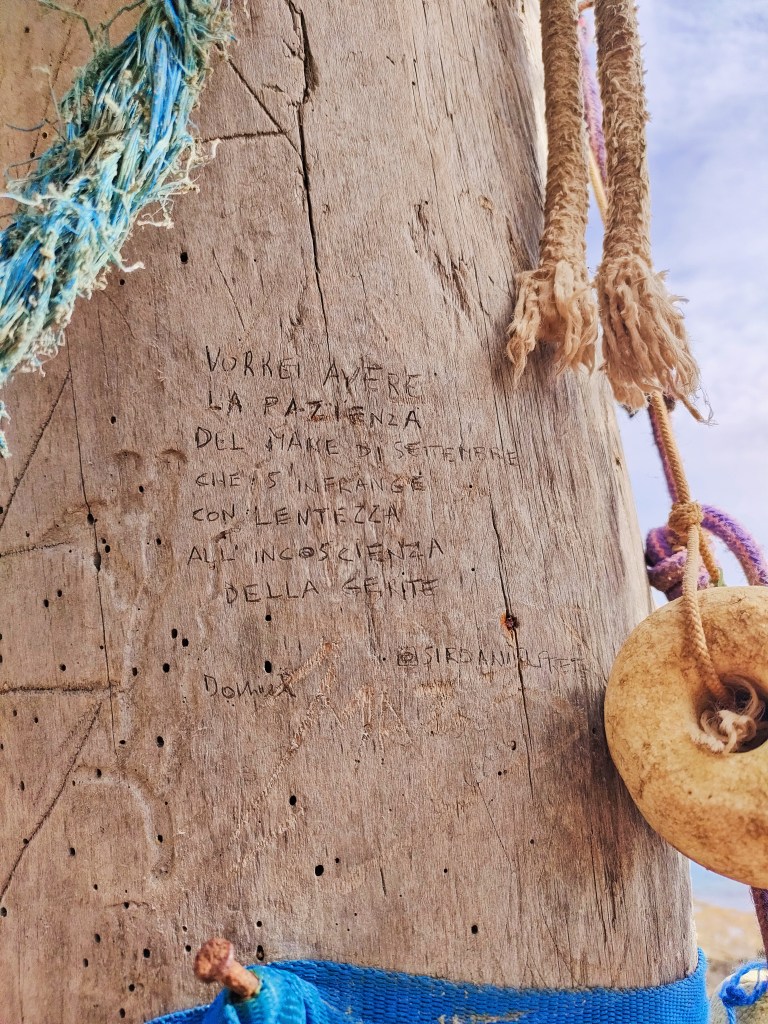 VORREI AVERE
LA PAZIENZA
DEL MARE DI SETTEMBRE
CHE S'INFRANGE
CON LENTEZZA
ALL'INCOSCIENZA
DELLA GENTE